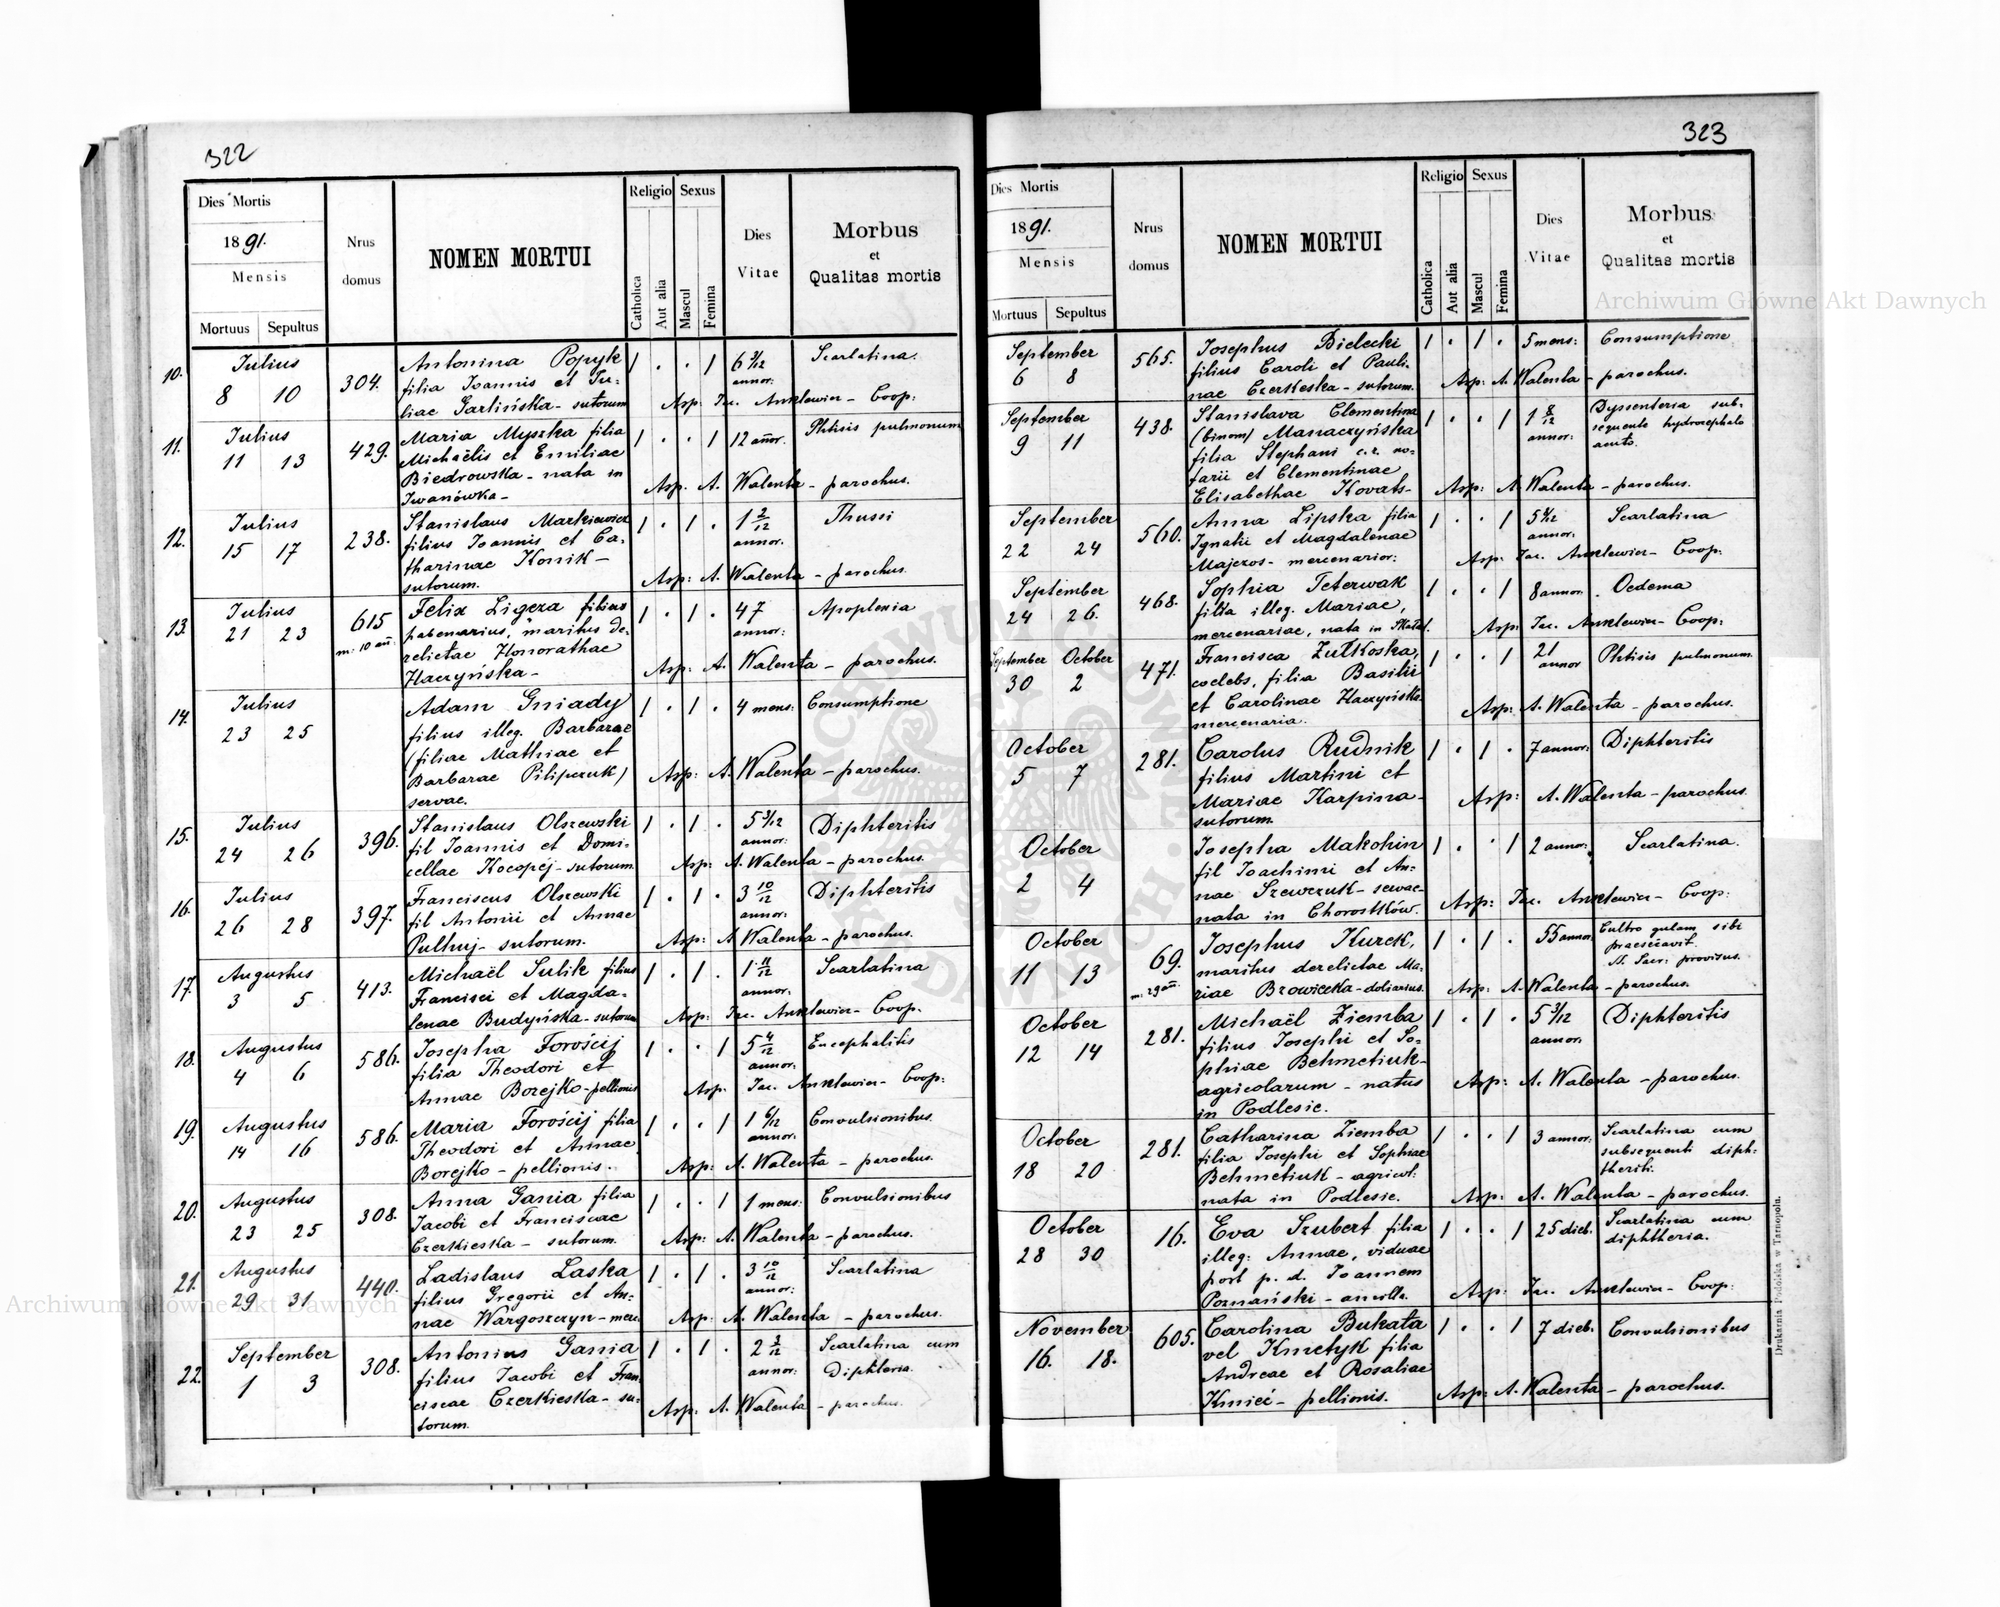 322
Dies Mortis
1891.
Mensis
Mortuus Sepultus
Nrus
domus
NOMEN MORTUI
Religio
Catholica
Aut alia
Sexus
Mascul
Femina
Dies
Vitae
Morbus
et
Qualitas mortis
10.
Iulius
8 10
304.
Antonina Popyk
filia Ioannis et Iu-
liae Garlińska - sutorum
1 . . 1
6 3/12
annor:
Scarlatina.
Asp: Iac. Anklewicz - Coop:
11.
Iulius
11 13
429.
Maria Myszka filia
Michaëlis et Emiliae
Biedrowska - nata in
Iwanówka -
1 . . 1
12 annor.
Phtisis pulmonum
Asp. A. Walenta - parochus.
12.
Iulius
15 17
238.
Stanislaus Markiewicz
filius Ioannis et Ca-
tharinae Konik -
sutorum.
1 . 1 .
1 2/12
annor.
Thussi
Asp: A. Walenta - parochus.
13.
Iulius
21 23
615
m: 10 añ:
Felix Ligeza filius
pabenarius, maritus de-
relictae Honorathae
Haczyńska -
1 . 1 .
47
annor:
Apoplexia
Asp: A. Walenta - parochus.
14.
Iulius
23 25
Adam Gniady
filius illeg. Barbarae
(filiae Mathiae et
Barbarae Pilipczuk)
servae.
1 . 1 .
4 mens:
Consumptione
Asp: A. Walenta - parochus.
15.
Iulius
24 26
396.
Stanislaus Olszewski
fil Ioannis et Domi-
cellae Kocopej - sutorum
1 . 1 .
5 3/12
annor:
Diphteritis
Asp: A. Walenta - parochus.
16.
Iulius
26 28
397.
Franciscus Olszewski
fil Antonii et Annae
Pulhuj - sutorum.
1 . 1 .
3 10/12
annor:
Diphteritis
Asp: A Walenta - parochus.
17.
Augustus
3 5
413.
Michaël Sulik filius
Francisci et Magda-
lenae Budyńska - sutorum
1 . 1 .
1 11/12
annor:
Scarlatina
Asp: Iac. Anklewicz - Coop.
18.
Augustus
4 6
586.
Iosepha Forościj
filia Theodori et
Annae Borejko - pellionis
1 . . 1
5 4/12
annor:
Encephalitis
Asp. Iac. Anklewicz - Coop:
19.
Augustus
14 16
586.
Maria Forościj filia
Theodori et Annae
Borejko - pellionis.
1 . . 1
1 6/12
annor:
Convulsionibus.
Asp: A. Walenta - parochus.
20.
Augustus
23 25
308.
Anna Gania filia
Iacobi et Franciscae
Czerkieska - sutorum.
1 . . 1
1 mens:
Convulsionibus
Asp: A. Walenta - parochus.
21.
Augustus
29 31
440.
Ladislaus Laska
filius Gregorii et An-
nae Wargoszczyn - merc
1 . 1 .
3 10/12
annor:
Scarlatina
Asp: A. Walenta - parochus.
22.
September
1 3
308.
Antonius Gania
filius Iacobi et Fran-
ciscae Czerkieska - su-
torum.
1 . 1 .
2 3/12
annor:
Scarlatina cum
Diphteria.
Asp: A. Walenta - parochus.
323
Dies Mortis
1891.
Mensis
Mortuus Sepultus
Nrus
domus
NOMEN MORTUI
Religio
Catholica
Aut alia
Sexus
Mascul
Femina
Dies
Vitae
Morbus
et
Qualitas mortis
September
6 8
565.
Iosephus Bielecki
filius Caroli et Pauli-
nae Czerkeska - sutorum.
1 . 1 .
5 mens:
Consumptione
Asp: A. Walenta - parochus.
September
9 11
438.
Stanislava Clementina
(binom) Manaczyńska
filia Stephani c.r. no-
tarii et Clementinae
Elisabethae Kovats -
1 . . 1
1 8/12
annor:
Dyssenteria sub-
sequente hydrocephalo
acuto.
Asp: A. Walenta - parochus.
September
22 24
560.
Anna Lipska filia
Ignatii et Magdalenae
Majczos - mercenarior:
1 . . 1
5 4/12
annor:
Scarlatina
Asp: Iac. Anklewicz - Coop:
September
24 26.
468.
Sophia Teterwak
filia illeg. Mariae,
mercenariae, nata in Skałat.
1 . . 1
8 annor.
Oedema
Asp: Iac. Anklewicz - Coop:
September October
30 2
471.
Francisca Zulkoska,
coelebs, filia Basilii
et Carolinae Haczyńska
mercenaria.
1 . . 1
21
annor
Phtisis pulmonum.
Asp: A. Walenta - parochus.
October
5 7
281.
Carolus Rudnik
filius Martini et
Mariae Karpina -
sutorum.
1 . 1 .
7 annor:
Diphteritis
Asp: A. Walenta - parochus.
October
2 4
Iosepha Makohin
fil Ioachimi et An-
nae Szewczuk - servae -
nata in Chorostków.
1 . . 1
2 annor:
Scarlatina.
Asp: Iac. Anklewicz - Coop:
October
11 13
69.
m: 29 añ:
Iosephus Kurek,
maritus derelictae Ma-
riae Browicka - doliarius.
1 . 1 .
55 annor.
Cultro gulam sibi
praesecavit.
N. Sacr: provisus.
Asp: A. Walenta - parochus.
October
12 14
281.
Michaël Ziemba
filius Iosephi et So-
phiae Behmetiuk -
agricolarum - natus
in Podlesie.
1 . 1 .
5 3/12
annor:
Diphteritis
Asp: A. Walenta - parochus.
October
18 20
281.
Catharina Ziemba
filia Iosephi et Sophiae
Behmetiuk - agricol:
nata in Podlesie.
1 . . 1
3 annor:
Scarlatina cum
subsequenti diph-
theriti.
Asp: A. Walenta - parochus.
October
28 30
16.
Eva Szubert filia
illeg: Annae, viduae
post p. d. Ioannem
Poznański - ancilla.
1 . . 1
25 dieb.
Scarlatina cum
diphtheria.
Asp: Iac. Anklewicz - Coop:
November
16. 18.
605.
Carolina Bukata
vel Kmetyk filia
Andreae et Rosaliae
Kmieć - pellionis.
1 . . 1
7 dieb.
Convulsionibus
Asp: A. Walenta - parochus.
Drukarnia Podolska w Tarnopolu.
Archiwum Główne Akt Dawnych
Archiwum Główne Akt Dawnych